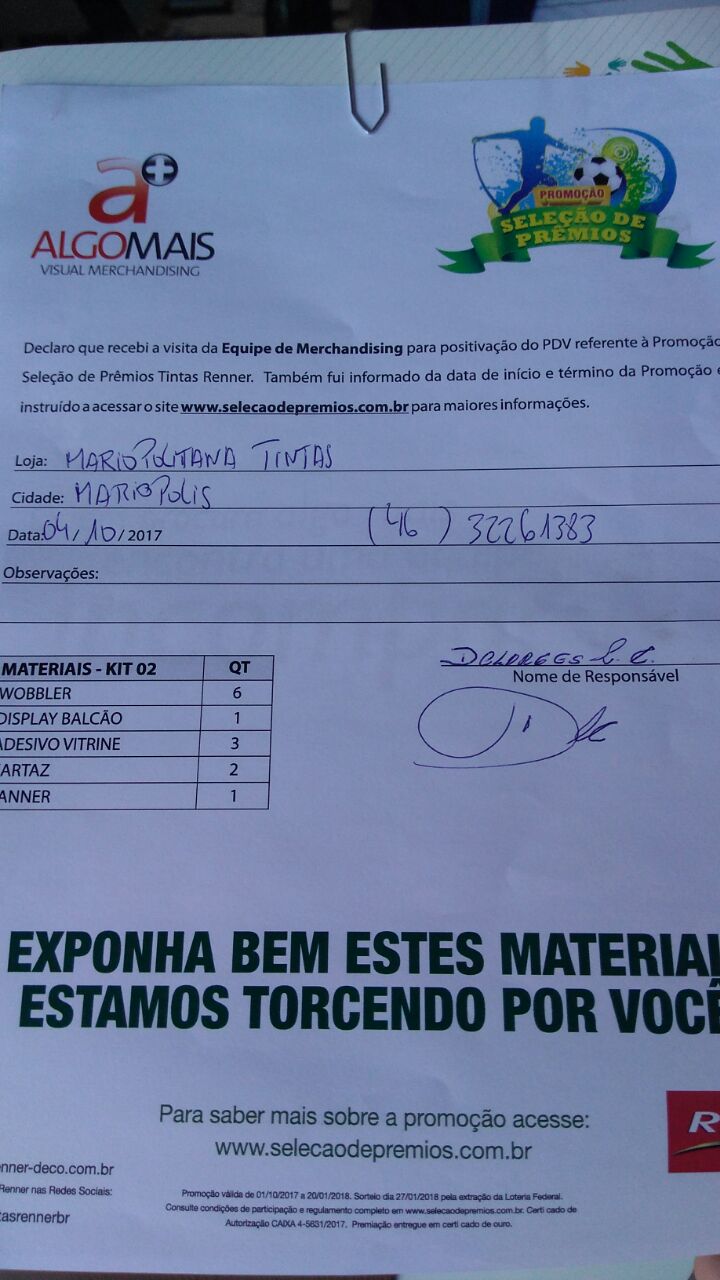 a+
ALGOMAIS
VISUAL MERCHANDISING
PROMOÇÃO
SELEÇÃO DE
PRÊMIOS
Declaro que recebi a visita da Equipe de Merchandising para positivação do PDV referente à Promoção
Seleção de Prêmios Tintas Renner. Também fui informado da data de início e término da Promoção e
instruído a acessar o site www.selecaodepremios.com.br para maiores informações.
Loja: MARIOPOLITANA TINTAS
Cidade: MARIOPOLIS
Data: 04/10/2017 (46) 32261383
Observações:
Nome de Responsável
MATERIAIS - KIT 02 QT
WOBBLER 6
DISPLAY BALCÃO 1
ADESIVO VITRINE 3
ARTAZ 2
ANNER 1
EXPONHA BEM ESTES MATERIAI
ESTAMOS TORCENDO POR VOCÊ
Para saber mais sobre a promoção acesse:
www.selecaodepremios.com.br
R
nner-deco.com.br
Renner nas Redes Sociais:
tasrennerbr
Promoção válida de 01/10/2017 a 20/01/2018. Sorteio dia 27/01/2018 pela extração da Loteria Federal.
Consulte condições de participação e regulamento completo em www.selecaodepremios.com.br. Certi cado de
Autorização CAIXA 4-5631/2017. Premiação entregue em certi cado de ouro.